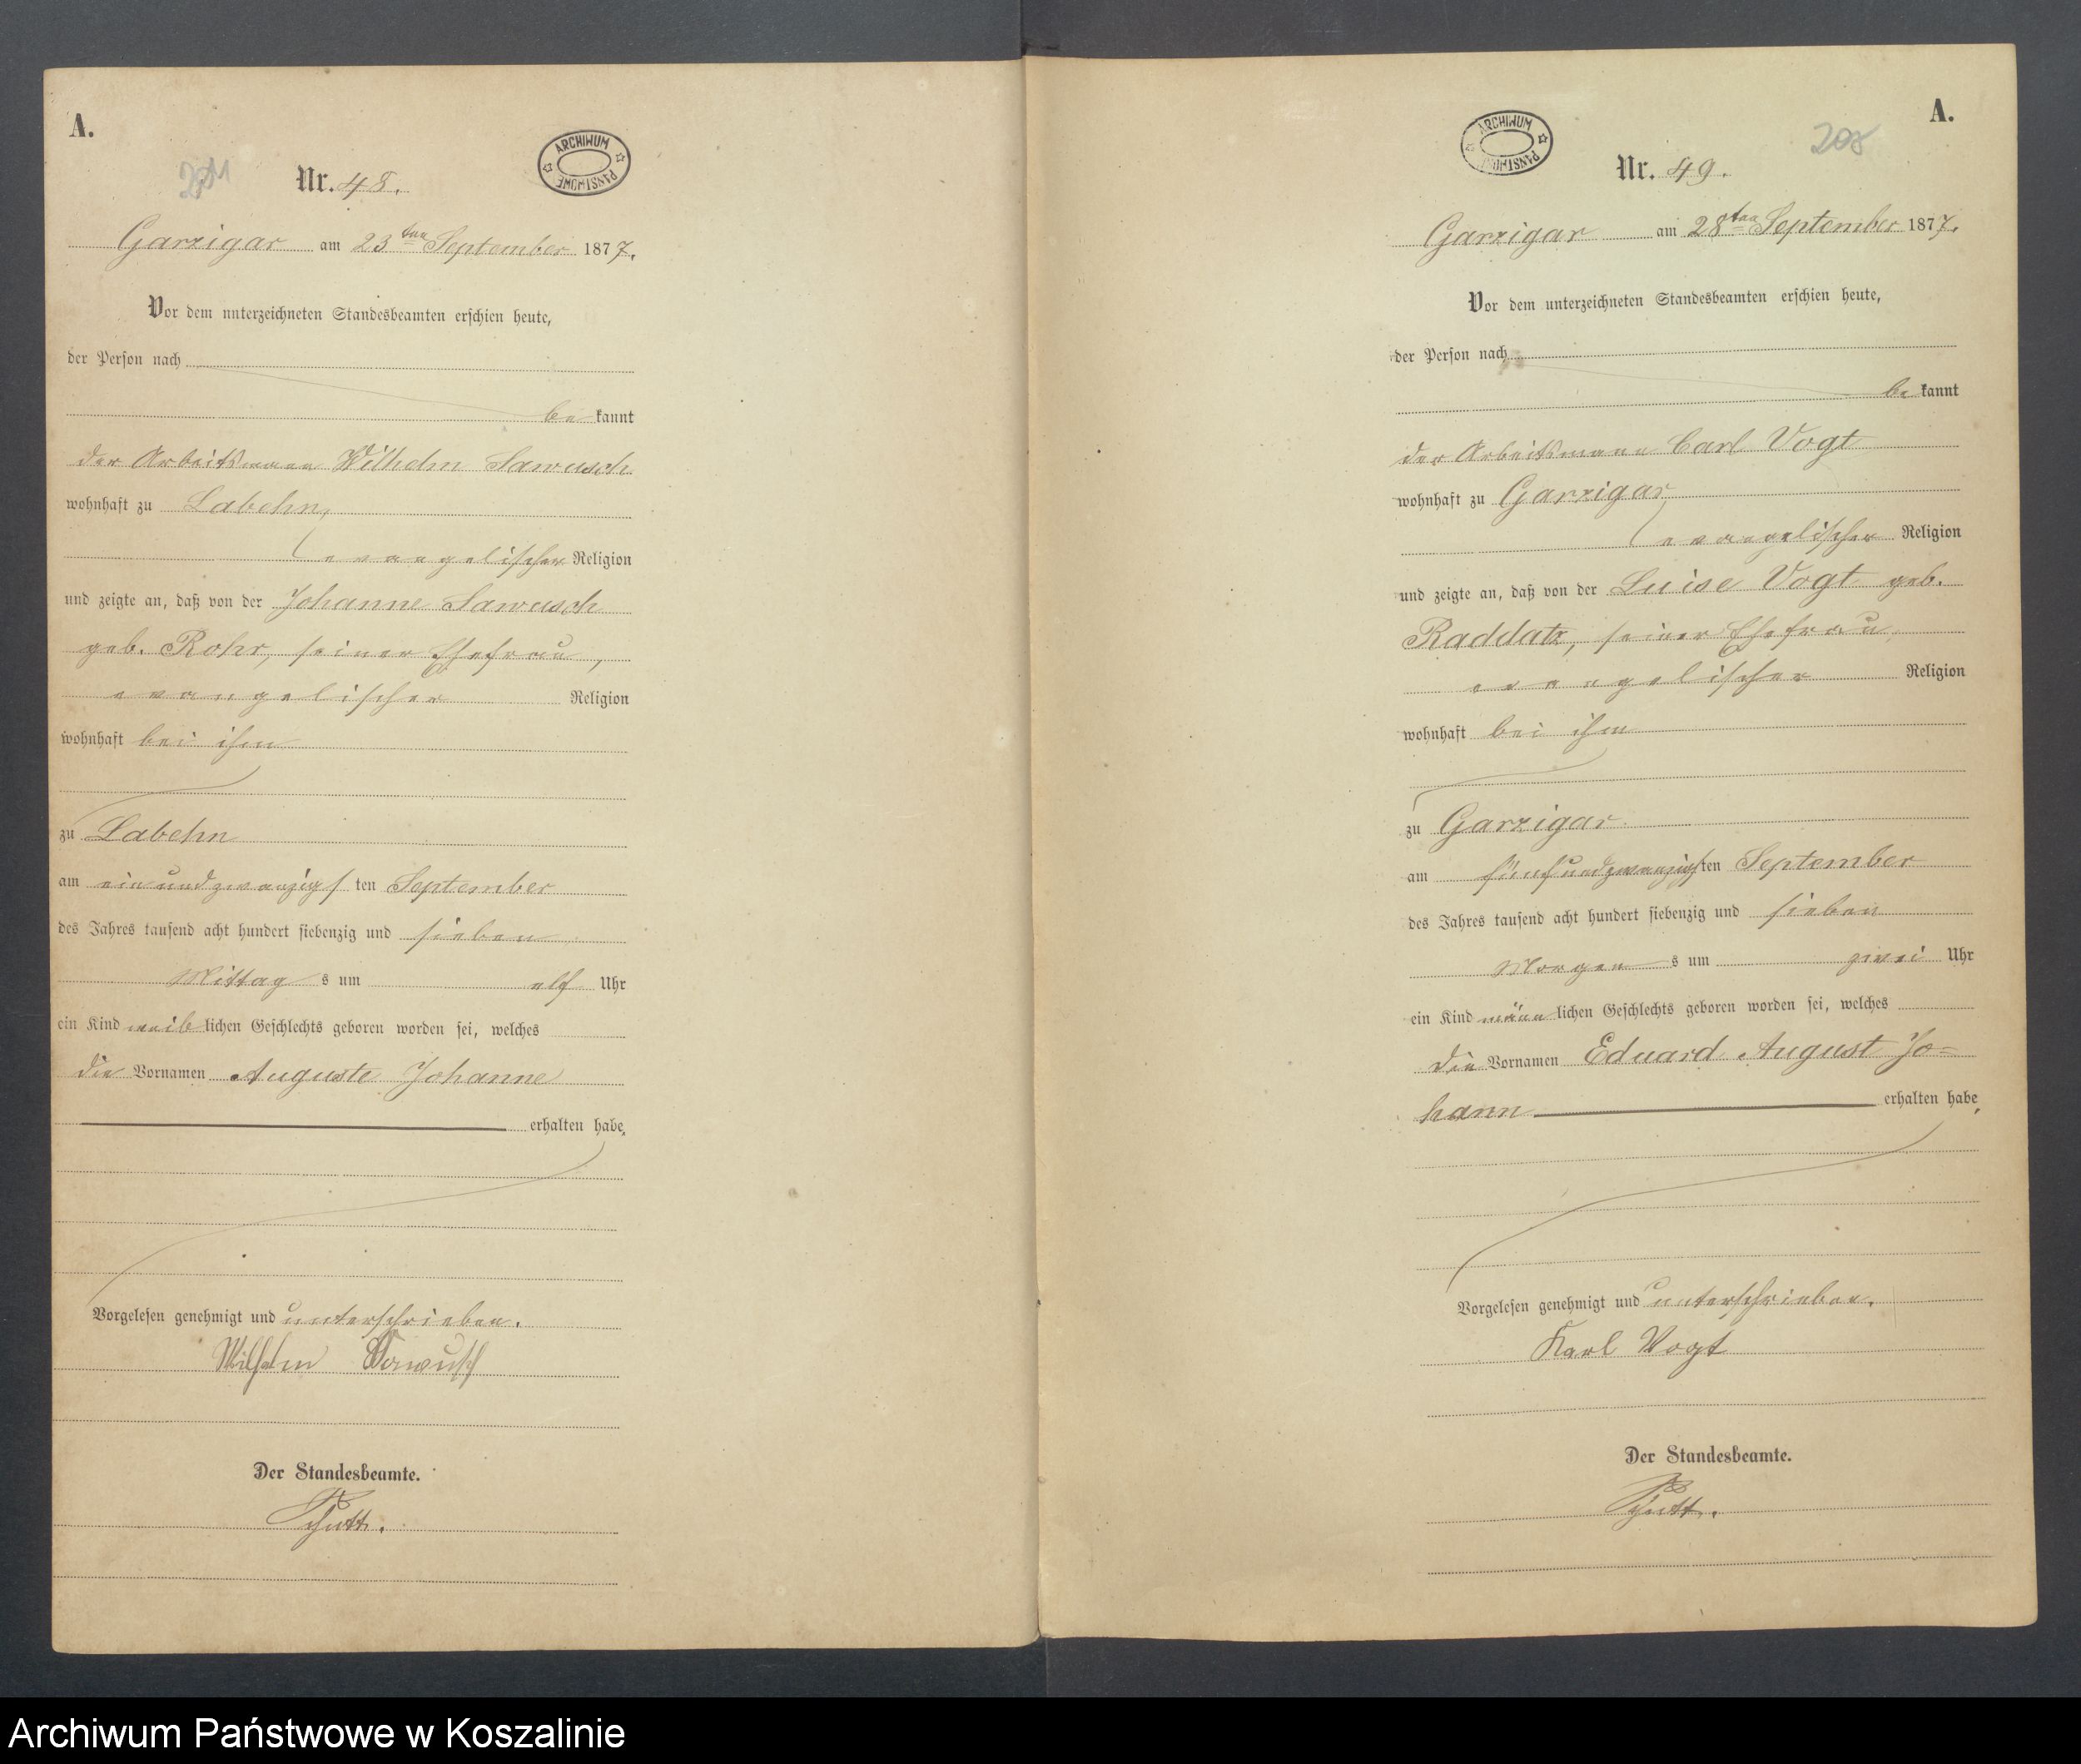 A.
Nr. 48.
ARCHIWUM PAŃSTWOWE
Garzigar am 23ten September 1877.
Vor dem unterzeichneten Standesbeamten erschien heute,
der Person nach
be kannt
der Arbeitsmann Wilhelm Sawusch
wohnhaft zu Labehn,
evangelischer Religion
und zeigte an, daß von der Johanne Sawusch
geb. Rohr, seiner Ehefrau,
evangelischer Religion
wohnhaft bei ihm
zu Labehn
am einundzwanzigs ten September
des Jahres tausend acht hundert siebenzig und sieben
Mittag s um elf Uhr
ein Kind weib lichen Geschlechts geboren worden sei, welches
die Vornamen Auguste Johanne
erhalten habe.
Vorgelesen genehmigt und unterschrieben.
Wilhelm Sawusch
Der Standesbeamte.
A.
208
ARCHIWUM PAŃSTWOWE
Nr. 49.
Garzigar am 28ten September 1877.
Vor dem unterzeichneten Standesbeamten erschien heute,
der Person nach
be kannt
der Arbeitsmann Carl Vogt
wohnhaft zu Garzigar
evangelischer Religion
und zeigte an, daß von der Luise Vogt geb.
Raddatz, seiner Ehefrau
evangelischer Religion
wohnhaft bei ihm
zu Garzigar
am fünfundzwanzigs ten September
des Jahres tausend acht hundert siebenzig und sieben
Morgen s um zwei Uhr
ein Kind männ lichen Geschlechts geboren worden sei, welches
die Vornamen Eduard August Jo=
hann erhalten habe.
Vorgelesen genehmigt und unterschrieben.
Karl Vogt
Der Standesbeamte.
Archiwum Państwowe w Koszalinie